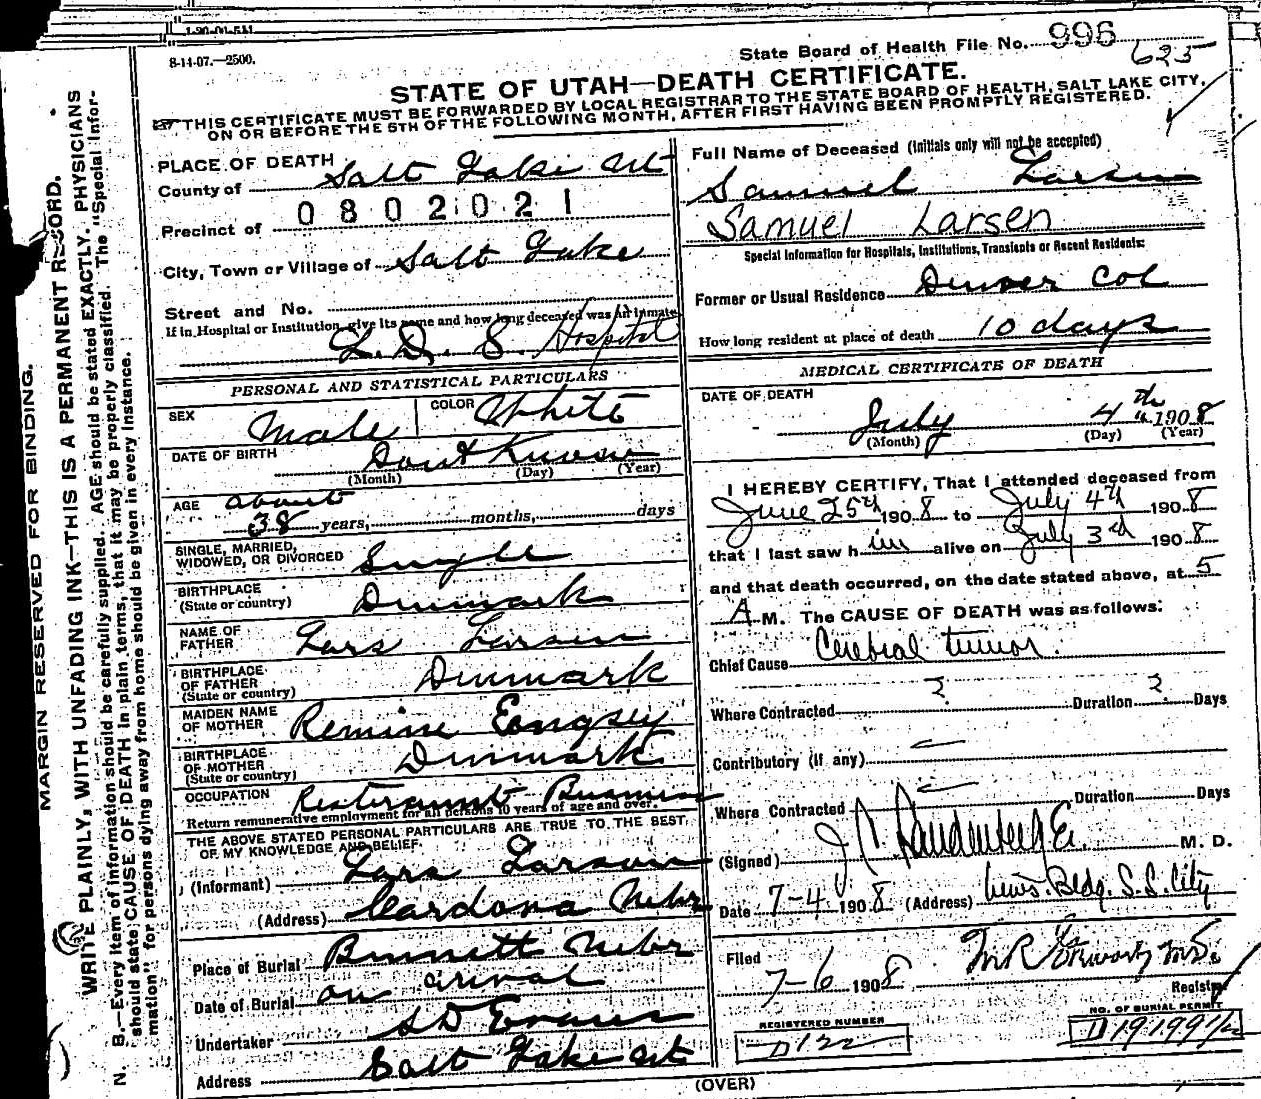 1-20-00-5M
8-14-07.—2500.
State Board of Health File No. 996
625
STATE OF UTAH—DEATH CERTIFICATE.
THIS CERTIFICATE MUST BE FORWARDED BY LOCAL REGISTRAR TO THE STATE BOARD OF HEALTH, SALT LAKE CITY,
ON OR BEFORE THE 5TH OF THE FOLLOWING MONTH, AFTER FIRST HAVING BEEN PROMPTLY REGISTERED.
MARGIN RESERVED FOR BINDING.
WRITE PLAINLY, WITH UNFADING INK—THIS IS A PERMANENT RECORD.
N. B.—Every item of information should be carefully supplied. AGE should be stated EXACTLY. PHYSICIANS
should state CAUSE OF DEATH in plain terms, that it may be properly classified. The "Special Infor-
mation" for persons dying away from home should be given in every instance.
PLACE OF DEATH
County of Salt Lake Ut
Precinct of 0802021
City, Town or Village of Salt Lake
Street and No.
If in Hospital or Institution, give its name and how long deceased was an inmate
L. D. S. Hospital
PERSONAL AND STATISTICAL PARTICULARS
SEX Male COLOR White
DATE OF BIRTH Dont Know
(Month) (Day) (Year)
AGE about
38 years, months, days
SINGLE, MARRIED,
WIDOWED, OR DIVORCED Single
BIRTHPLACE
(State or country) Denmark
NAME OF
FATHER Lars Larsen
BIRTHPLACE
OF FATHER
(State or country) Denmark
MAIDEN NAME
OF MOTHER
BIRTHPLACE
OF MOTHER
(State or country) Denmark
OCCUPATION Resteraunt Business
Return remunerative employment for all persons 10 years of age and over.
THE ABOVE STATED PERSONAL PARTICULARS ARE TRUE TO THE BEST
OF MY KNOWLEDGE AND BELIEF
(Informant) Lars Larson
(Address) Cardona Nebr
Place of Burial Bennett Nebr
Date of Burial on arival
Undertaker S D Evans
Address Salt Lake Ut
Full Name of Deceased (Initials only will not be accepted)
Samuel Larsen
Samuel Larsen
Special Information for Hospitals, Institutions, Transients or Recent Residents:
Former or Usual Residence Denver Col
How long resident at place of death 10 days
MEDICAL CERTIFICATE OF DEATH
DATE OF DEATH
July 4th 1908
(Month) (Day) (Year)
I HEREBY CERTIFY, That I attended deceased from
June 25th 1908 to July 4th 1908
that I last saw him alive on July 3rd 1908
and that death occurred, on the date stated above, at 5
A M. The CAUSE OF DEATH was as follows:
Chief Cause Cerebral tumor.
Where Contracted ? Duration ? Days
Contributory (if any)
Where Contracted Duration Days
(Signed) M. D.
Date 7-4 1908 (Address) News Bldg. S. L. City
Filed
7-6 1908
Registrar
REGISTERED NUMBER
D 122
NO. OF BURIAL PERMIT
(OVER)